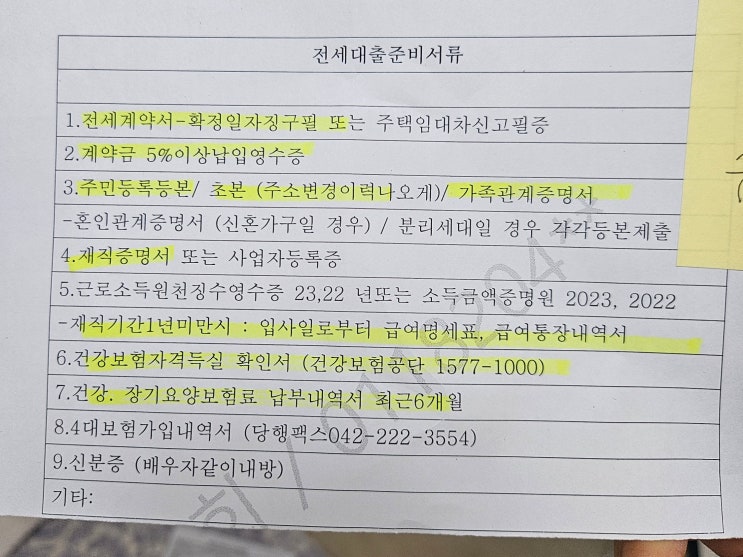 전세대출준비서류
1.전세계약서-확정일자징구필 또는 주택임대차신고필증
2.계약금 5%이상납입영수증
3.주민등록등본/ 초본 (주소변경이력나오게)/ 가족관계증명서
-혼인관계증명서 (신혼가구일 경우) / 분리세대일 경우 각각등본제출
4.재직증명서 또는 사업자등록증
5.근로소득원천징수영수증 23,22 년또는 소득금액증명원 2023, 2022
-재직기간1년미만시 : 입사일로부터 급여명세표, 급여통장내역서
6.건강보험자격득실 확인서 (건강보험공단 1577-1000)
7.건강. 장기요양보험료 납부내역서 최근6개월
8.4대보험가입내역서 (당행팩스042-222-3554)
9.신분증 (배우자같이내방)
기타:
희 / 01118204**